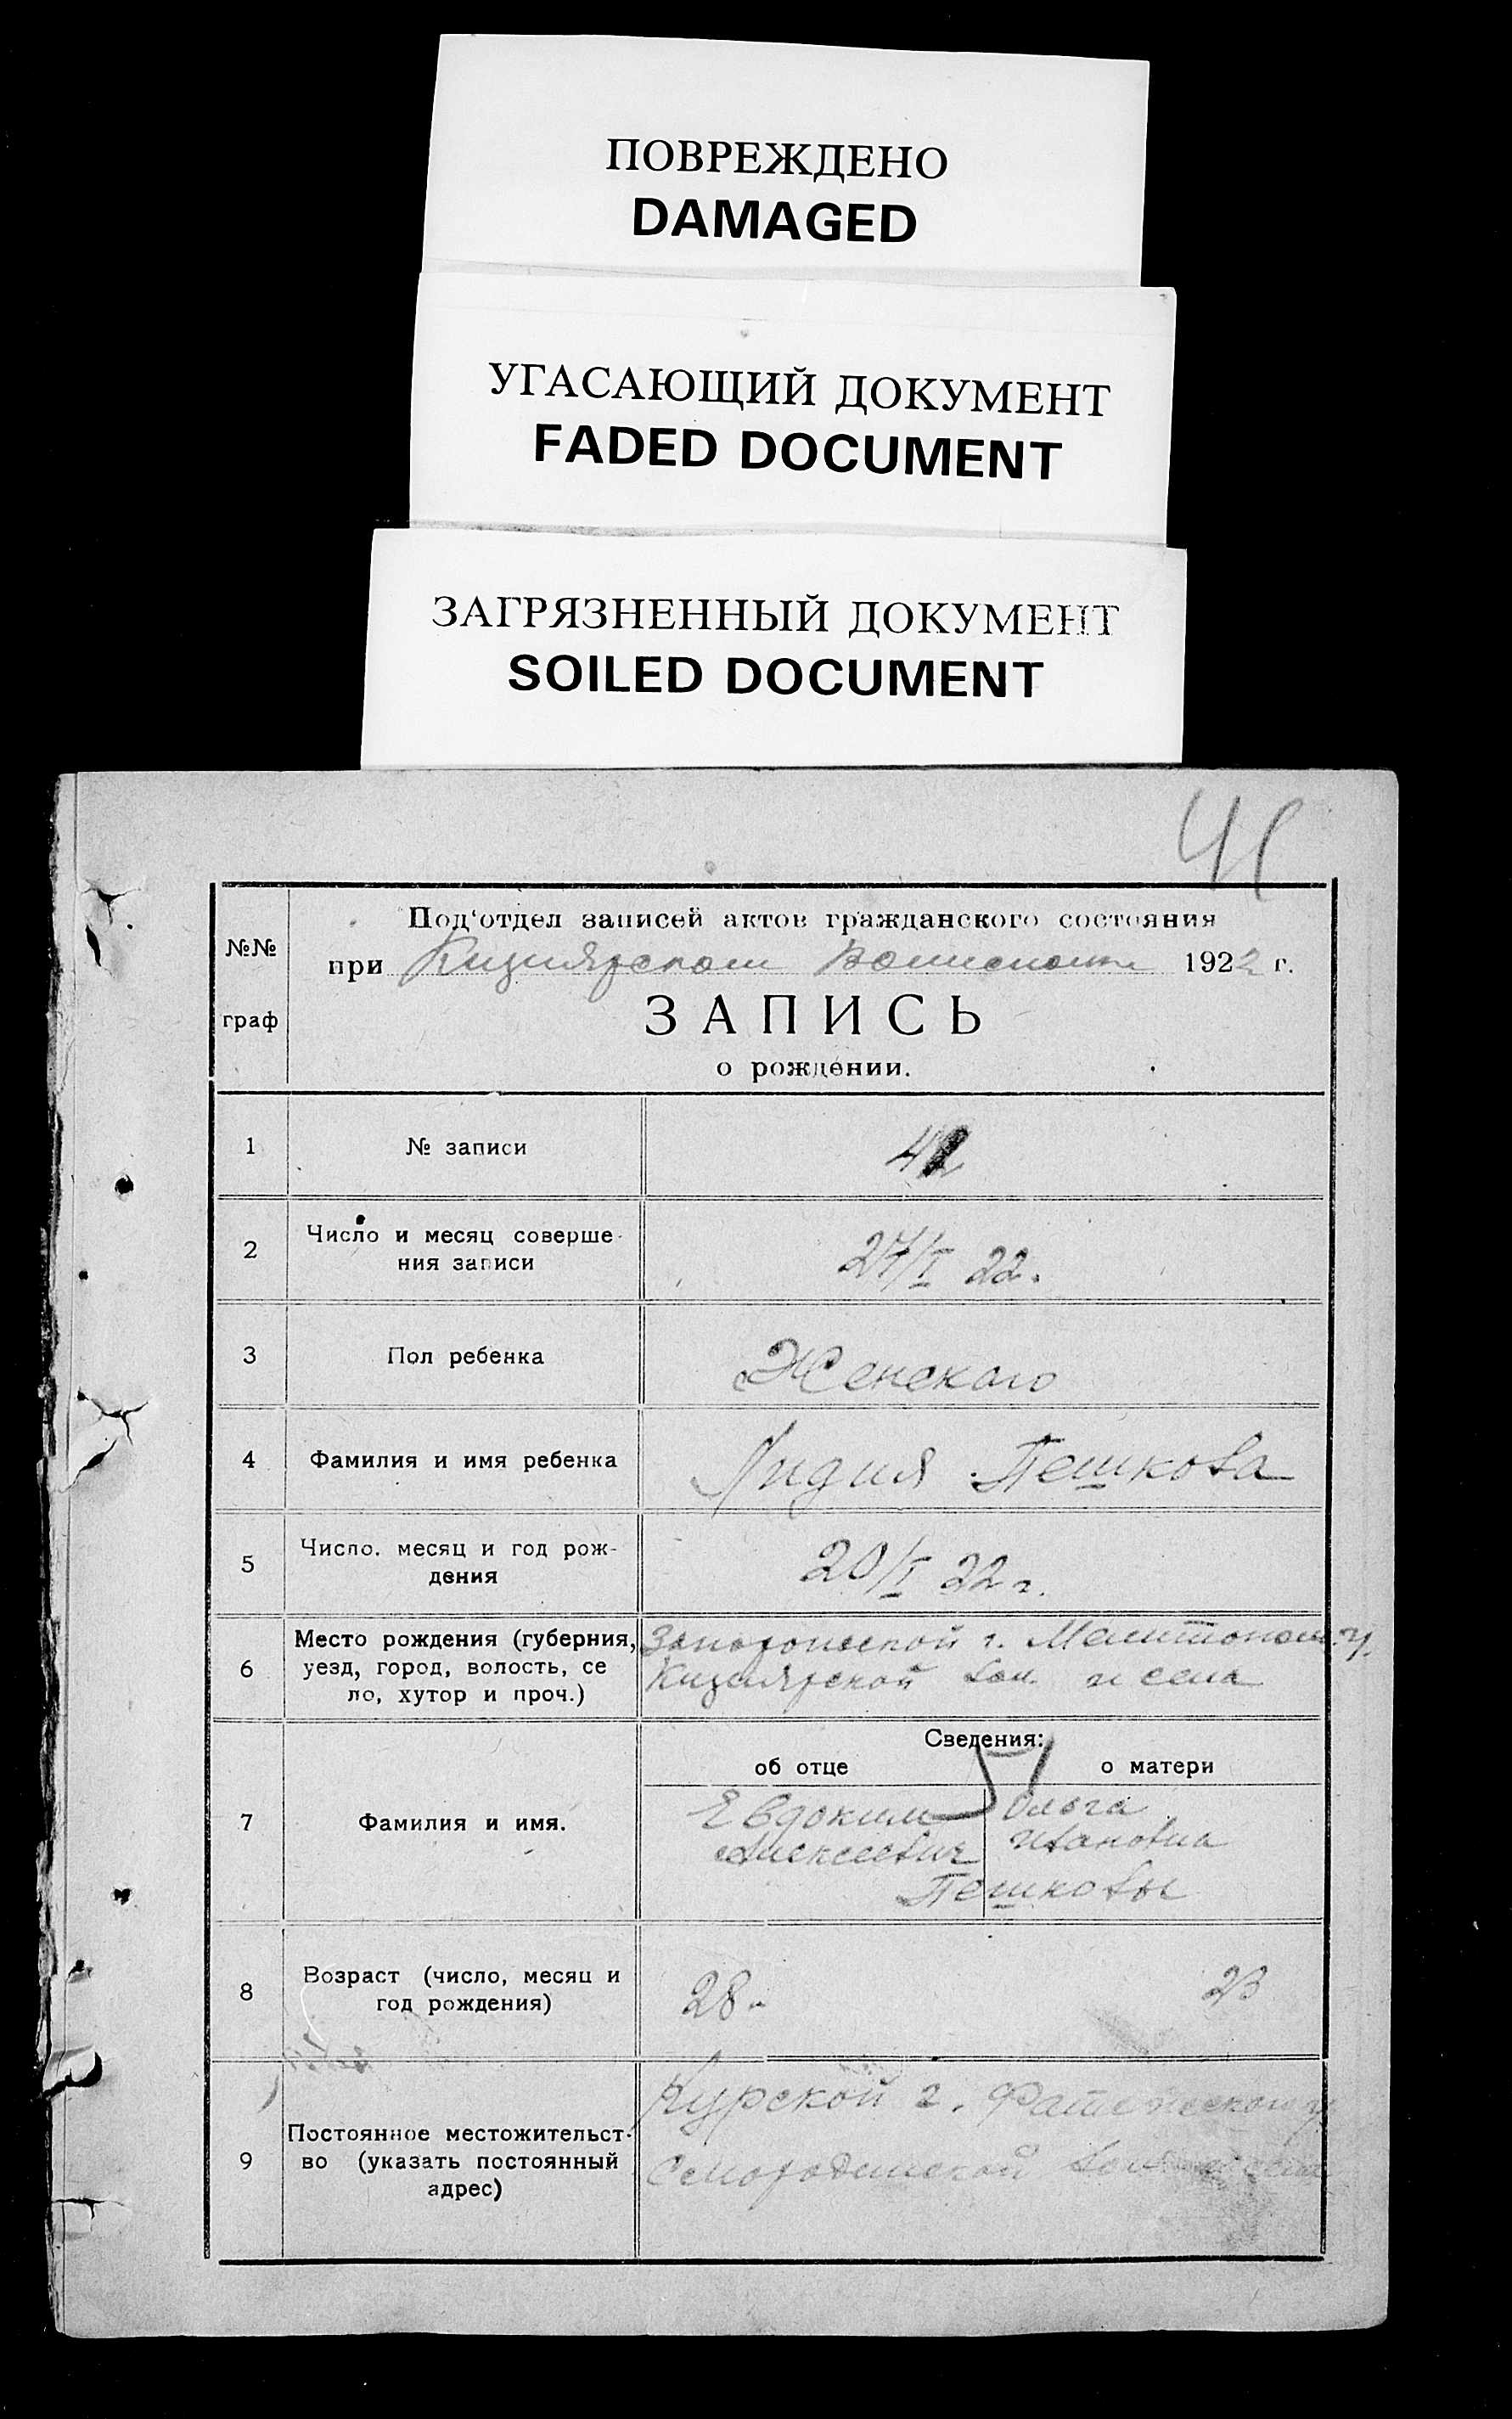 ПОВРЕЖДЕНО
DAMAGED
УГАСАЮЩИЙ ДОКУМЕНТ
FADED DOCUMENT
ЗАГРЯЗНЕННЫЙ ДОКУМЕНТ
SOILED DOCUMENT
41
№№ граф
Под'отдел записей актов гражданского состояния
при Кизиярском Волисполк 1922 г.
ЗАПИСЬ
о рождении.
1 № записи
2 Число и месяц соверше-
ния записи
27/I 22.
3 Пол ребенка Женского
4 Фамилия и имя ребенка Лидия Пешкова
5 Число, месяц и год рож-
дения
20/I 22 г.
6 Место рождения (губерния,
уезд, город, волость, се
ло, хутор и проч.)
Запорожской г. Мелитопол. у.
Кизиярской вол. и села
Сведения:
об отце о матери
7 Фамилия и имя.
Евдоким Ольга
Алексеевич Ивановна
Пешковы
8 Возраст (число, месяц и
год рождения)
28 23
9 Постоянное местожительст-
во (указать постоянный
адрес)
Курской г. Фатежского у
Смородинской вол. и села